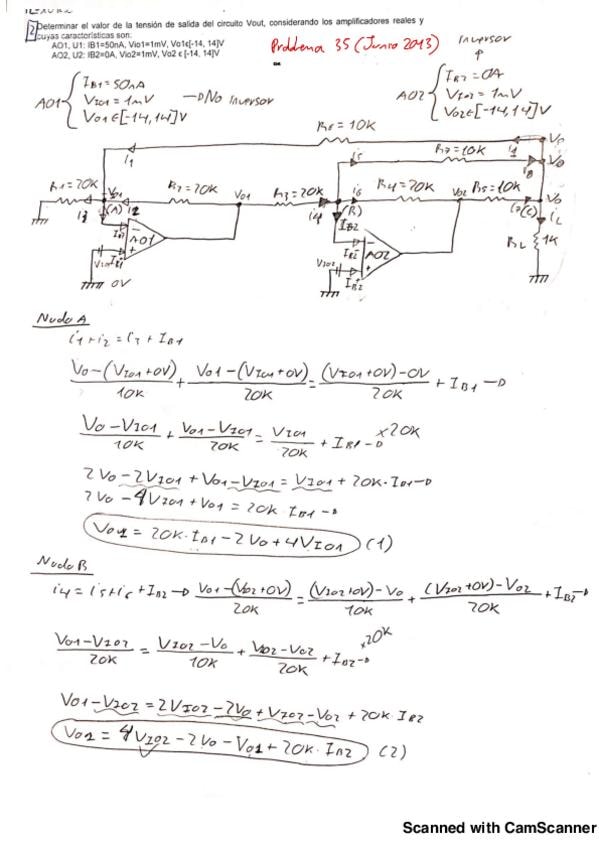 2 Determinar el valor de la tensión de salida del circuito Vout, considerando los amplificadores reales y
cuyas características son:
AO1, U1: IB1=50nA, Vio1=1mV, Vo1ε[-14, 14]V
AO2, U2: IB2=0A, Vio2=1mV, Vo2 ε [-14, 14]V
Problema 35 (Junio 2013)
Inversor
AO1 { IB1 = 50nA
VIO1 = 1mV
VO1 ∈ [-14,14] V
No Inversor
AO2 { IB2 = 0A
VIO2 = 1mV
VO2 ∈ [-14,14] V
R6 = 10K
i1
R7 = 10K
R1 = 20K
R2 = 20K
VO1
R3 = 20K
i5
i6
R4 = 20K
VO2
R5 = 10K
Vo
i3
(A)
i2
i4
(B)
IB2
(C)
iL
RL
1K
AO1
AO2
0V
Nudo A
i1 + i2 = i3 + IB1
Vo-(VIO1+0V)/10K + VO1-(VIO1+0V)/20K = (VIO1+0V)-0V/20K + IB1 →
Vo-VIO1/10K + VO1-VIO1/20K = VIO1/20K + IB1 → x20K
2Vo - 2VIO1 + VO1 - VIO1 = VIO1 + 20K·IB1 →
2Vo - 4VIO1 + VO1 = 20K·IB1 →
VO1 = 20K·IB1 - 2Vo + 4VIO1 (1)
Nudo B
i4 = i5 + i6 + IB2 → VO1-(VO2+0V)/20K = (VIO2+0V)-Vo/10K + (VIO2+0V)-VO2/20K + IB2 →
VO1-VIO2/20K = VIO2-Vo/10K + VIO2-VO2/20K + IB2 → x20K
VO1 - VIO2 = 2VIO2 - 2Vo + VIO2 - VO2 + 20K·IB2
VO2 = 4VIO2 - 2Vo - VO1 + 20K·IB2 (2)
Scanned with CamScanner